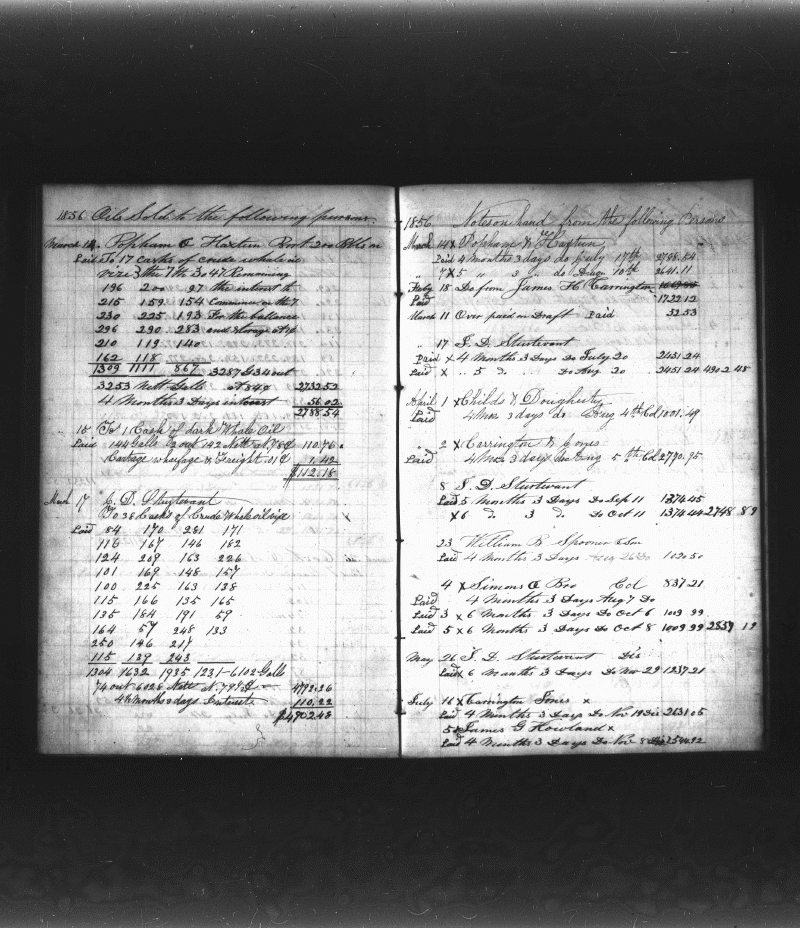 1856 Oils Sold to the following persons
March 14 Popham & Haxtun 200 Bbls
Paid To 17 casks of crude whale oil
vize 3 the 7th 3 o 47 Remaining
196 200 97 the interest
215 159 154 Commence on the
230 225 193 For the ballance
296 290 283 and storage
210 119 140
162 118
1309 1111 867 3287 G 34 out
3253 Nett Galls At 84¢ 2732.52
4 Months 3 Days interest 56.02
2788.54
" 18 To 1 Cask of dark Whale Oil
Paid 144 Galls 2 out 142 Nett at 78¢ 110.76
Cartage wharfage & Freight .01¢ 1.42
$112.18
March 17 D. Sturtevant
To 38 Casks of Crude Whale oil vize
Paid 84 170 281 171
116 167 146 182
124 209 163 226
101 169 148 157
100 225 163 138
115 166 135 165
135 184 191 59
164 57 248 133
250 146 217
115 139 243
1304 1632 1935 1231 - 6102 Galls
74 out 6028 Nett at 79½¢ 4792.26
4½ Months 3 days Interest 110.22
$4902.48
1856 Notes on hand from the following Persons
March 14 x Popham & Haxtun
Paid 4 Months 3 days do July 17th 2788.54
" 7 x 5 " 3 " do Augu 10th 2641.11
Feby 18 Do from James H. Carrington
Paid 1722 12
March 11 Over paid on Draft Paid 32.53
" 17 J. D. Sturtevant
Paid x 4 Months 3 Days Do July 20 2451.24
Paid x " 5 D. " Do Aug 20 2451.24 4902.48
April 1 x Childs & Dougherty
Paid 4 Mos 3 days do Aug 4th Cd 1801.49
" 2 x Carrington & Jones
Paid 4 Mos 3 days Do Aug 5th Cd 2790.95
8 J. D. Sturtevant
Paid 5 Months 3 Days Do Sep 11 1374.45
x 6 D. 3 D. Do Oct 11 1374.44 2748 89
23 William B Spooner & Son
Paid 4 Months 3 Days Aug 26 Do 1020.50
4 x Simons & Bro Cd 837.21
Paid 4 Months 3 Days Aug 7 Do
Paid 3 x 6 Months 3 Days Do Oct 6 1013 99
Paid 5 x 6 Months 3 Days Do Oct 8 1009.99 2859 19
May 26 J. D. Sturtevant Dis
Paid x 6 Months 3 Days Do Nov 29 1237.21
July 16 x Carrington Jones x
Paid 4 Months 3 Days Do Nov 19 Dis 2631.05
5 x James G Howland x
Paid 4 Months 3 Days Do Nov 8